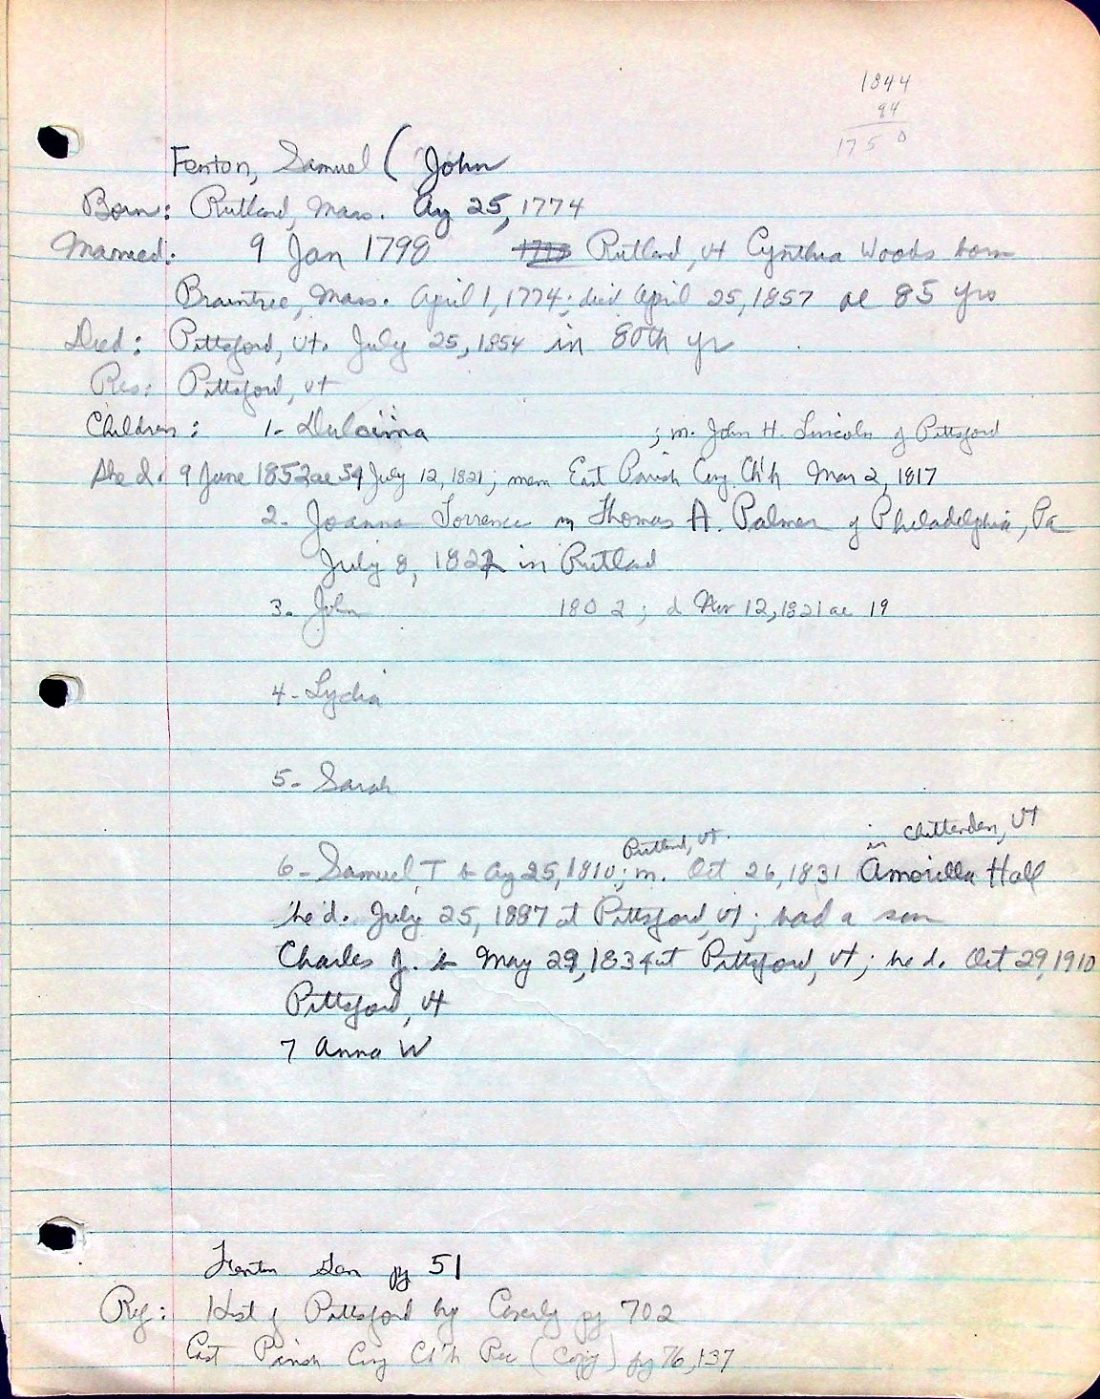 1844
94
1750
Fenton, Samuel (John
Born: Rutland, Mass. Ag 25, 1774
Married: 9 Jan 1798 Rutland, Vt Cynthia Woods born
Braintree, Mass. April 1, 1774; died April 25, 1857 ae 85 yrs
Died: Pittsford, Vt. July 25, 1854 in 80th yr
Res: Pittsford, Vt
Children: 1- Dulcima ; m. John H. Lincoln of Pittsford
She d. 9 June 1852 ae 54 July 12, 1821; mem East Parish Cong Ch'h Mar 2, 1817
2- Joanna Torrence m Thomas A. Palmer of Philadelphia, Pa
July 8, 1822 in Rutlad
3- John 1802; d Nov 12, 1821 ae 19
4- Lydia
5- Sarah
Rutland, Vt. in Chittenden, Vt
6- Samuel T b Ag 25, 1810; m. Oct 26, 1831 Amorilla Hall
he d. July 25, 1887 at Pittsford, Vt; had a son
Charles J. b May 29, 1834 at Pittsford, Vt; he d. Oct 29, 1910
Pittsford, Vt
7 Anna W
Fenton Gen pg 51
Ref: Hist of Pittsford by Caverly pg 702
East Parish Cong Ch'h Rec (Copy) pg 76, 137